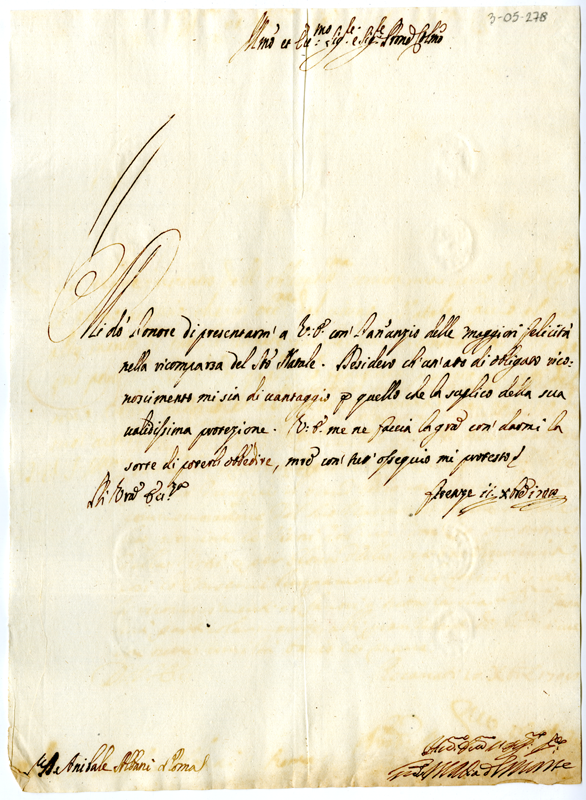 3-05-278
Ill.mo et Ecc.mo Sig.re e Sig.re Pron Col.mo
Mi do l'onore di presentarmi a V: E: con l'annunzio delle maggiori felicità
nella ricomparsa del Sto Natale. Desidero ch'un atto di obligato rico-
noscimento mi sia di vantaggio p quello che la suplico della sua
validissima protezione. V: E: me ne faccia la gra con' darmi la
sorte di poterl' obbedire, mre con' tutt' ossequio mi protesto
Di Vra Ecc.za
Firenze
Anibale Albani Roma